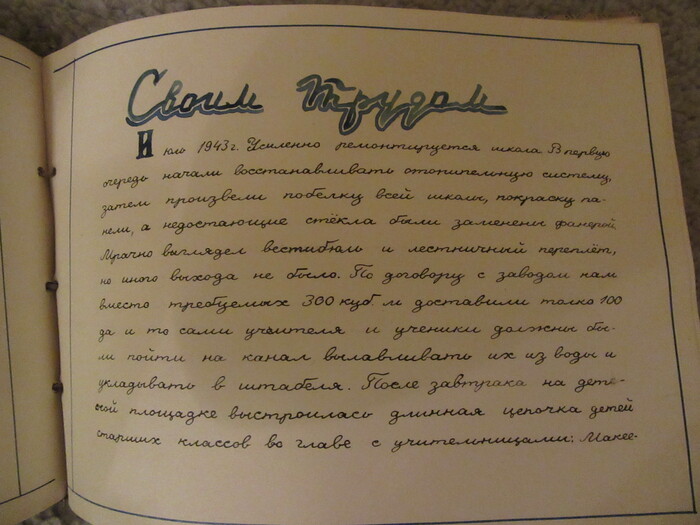 Своим трудом
Июль 1943 г. Усиленно ремонтируется школа В первую
очередь начали восстанавливать отопительную систему,
затем произвели побелку всей школы, покраску па-
нели, а недостающие стёкла были заменены фанерой.
Мрачно выглядел вестибюль и лестничный переплёт,
но иного выхода не было. По договору с заводом нам
вместо требуемых 300 куб м доставили только 100
да и то сами учителя и ученики должны бы-
ли пойти на канал вылавливать их из воды и
укладывать в штабеля. После завтрака на дет-
ской площадке выстроилась длинная цепочка детей
старших классов во главе с учительницами: Макее-